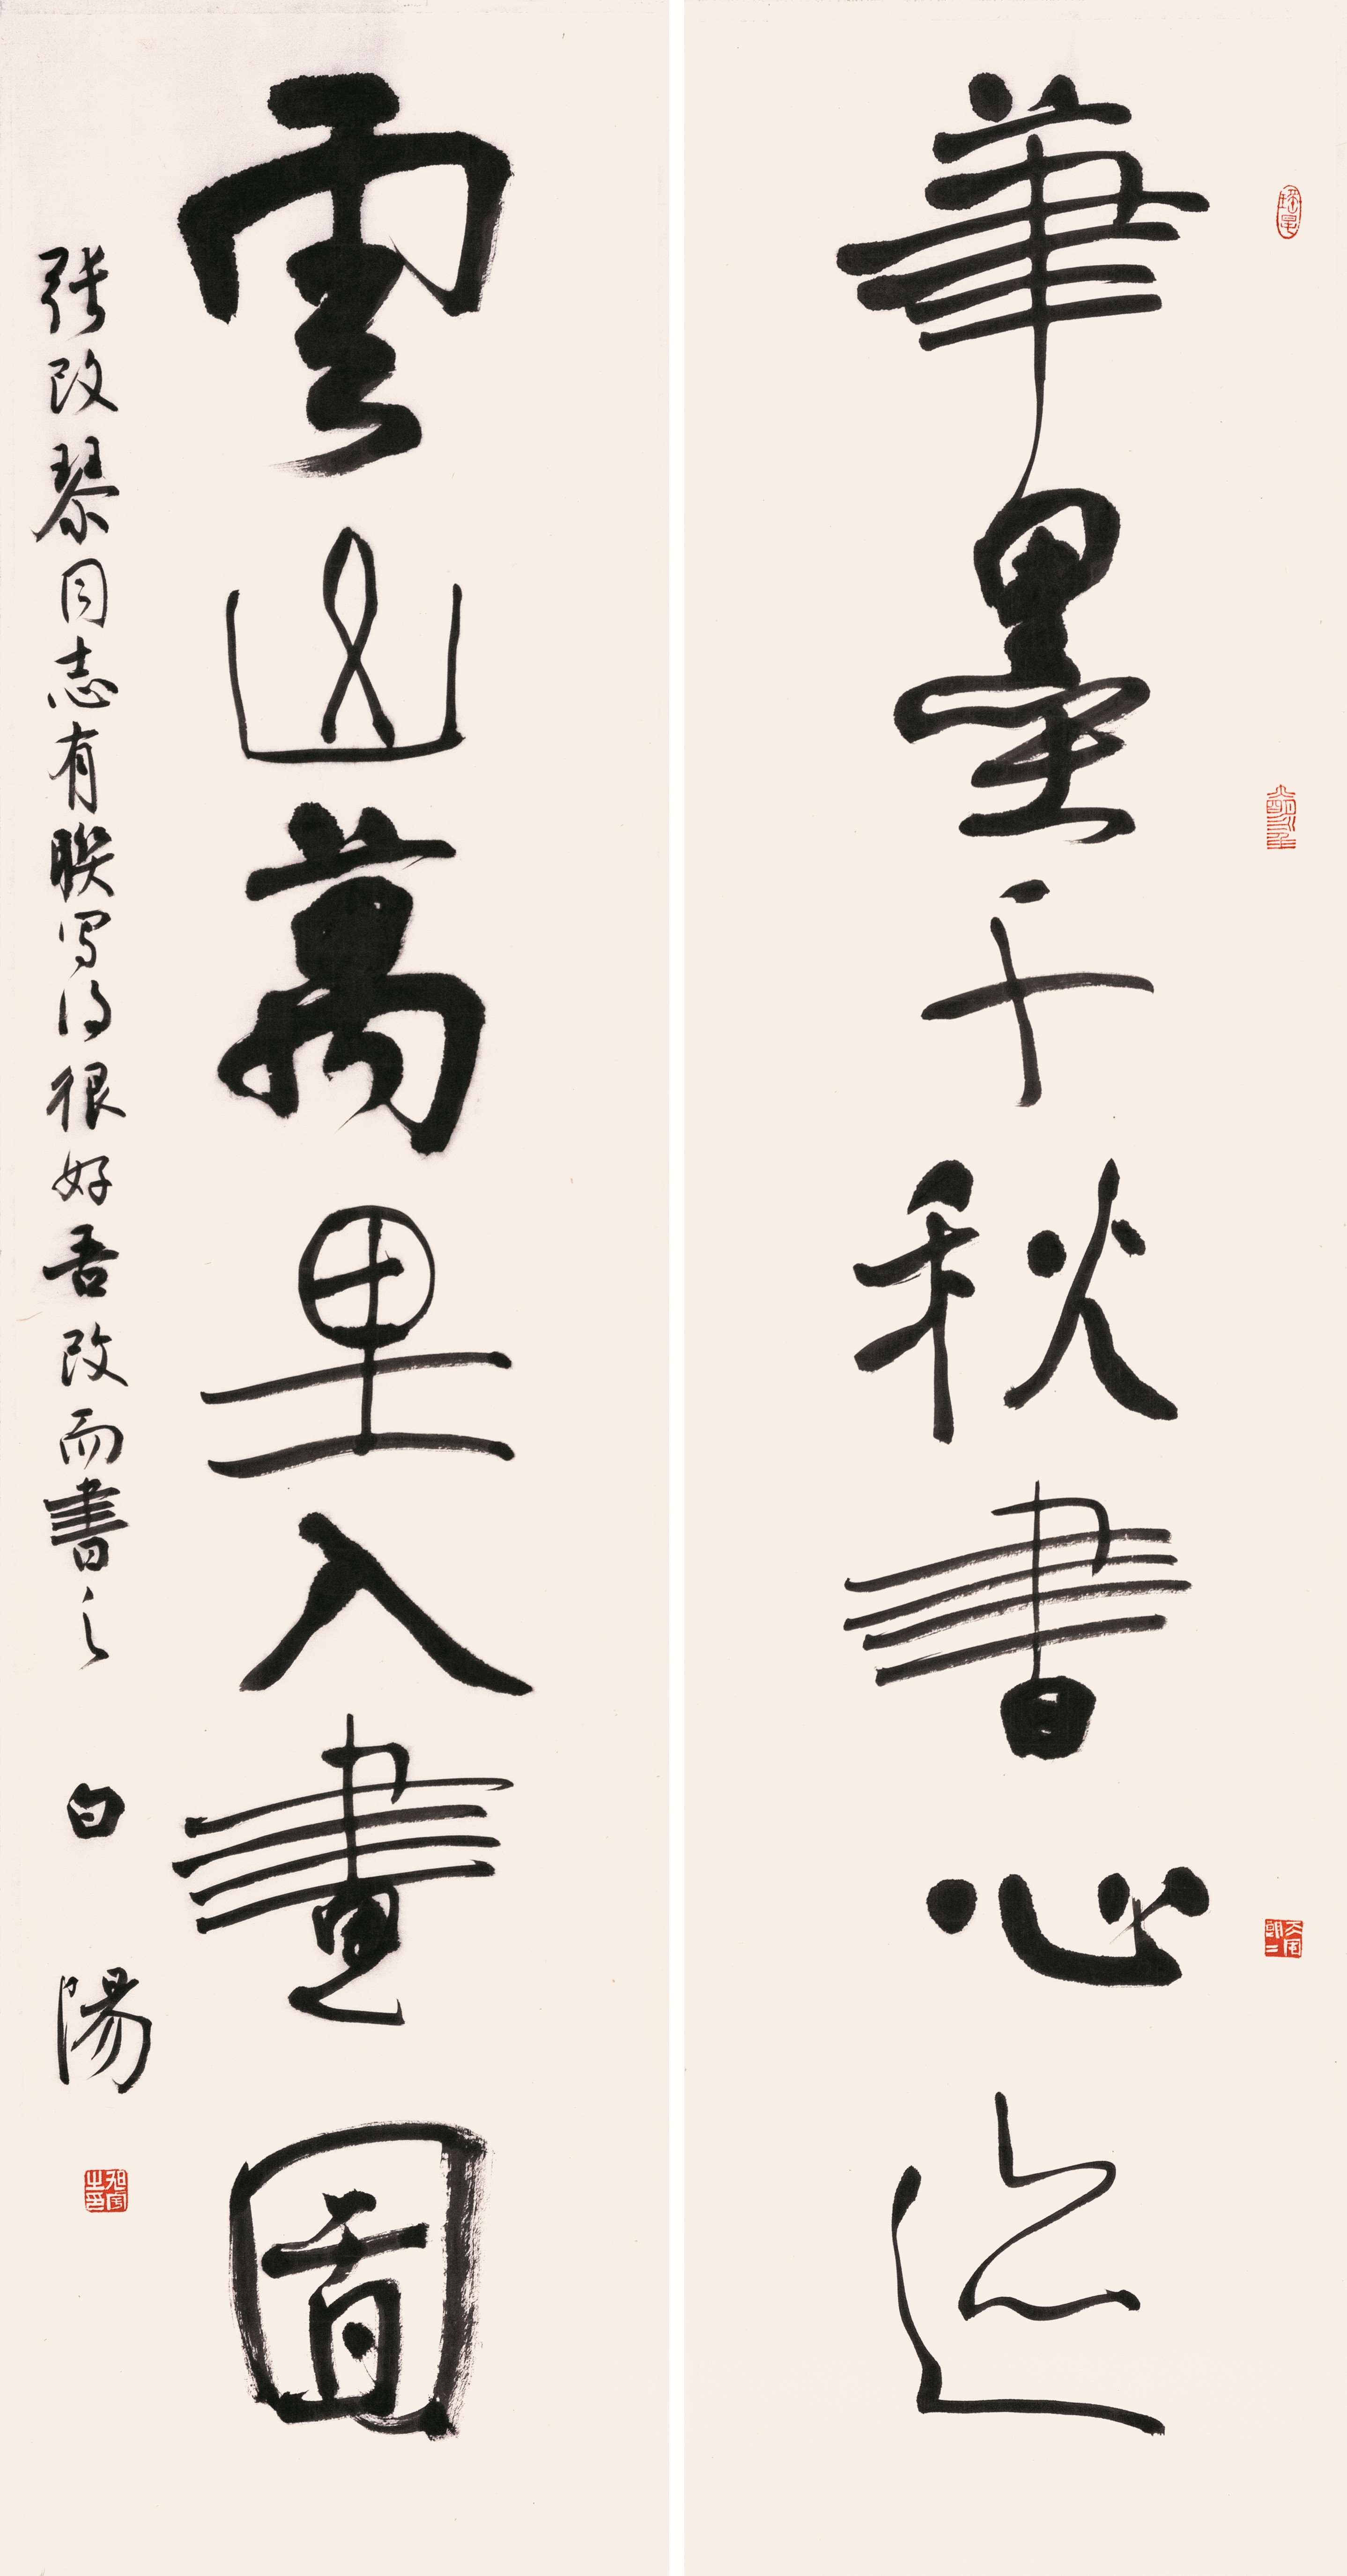 筆墨千秋書心迹
雲山萬里入畫圖
張改琴同志有聯寫得很好吾改而書之
白陽